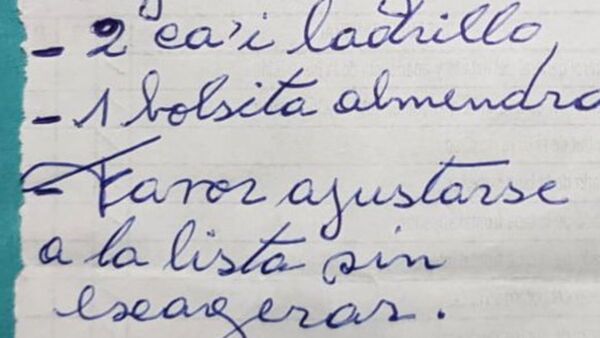 - 2 ca'i ladrillo
- 1 bolsita almendra
- Favor ajustarse
a la lista sin
exagerar.